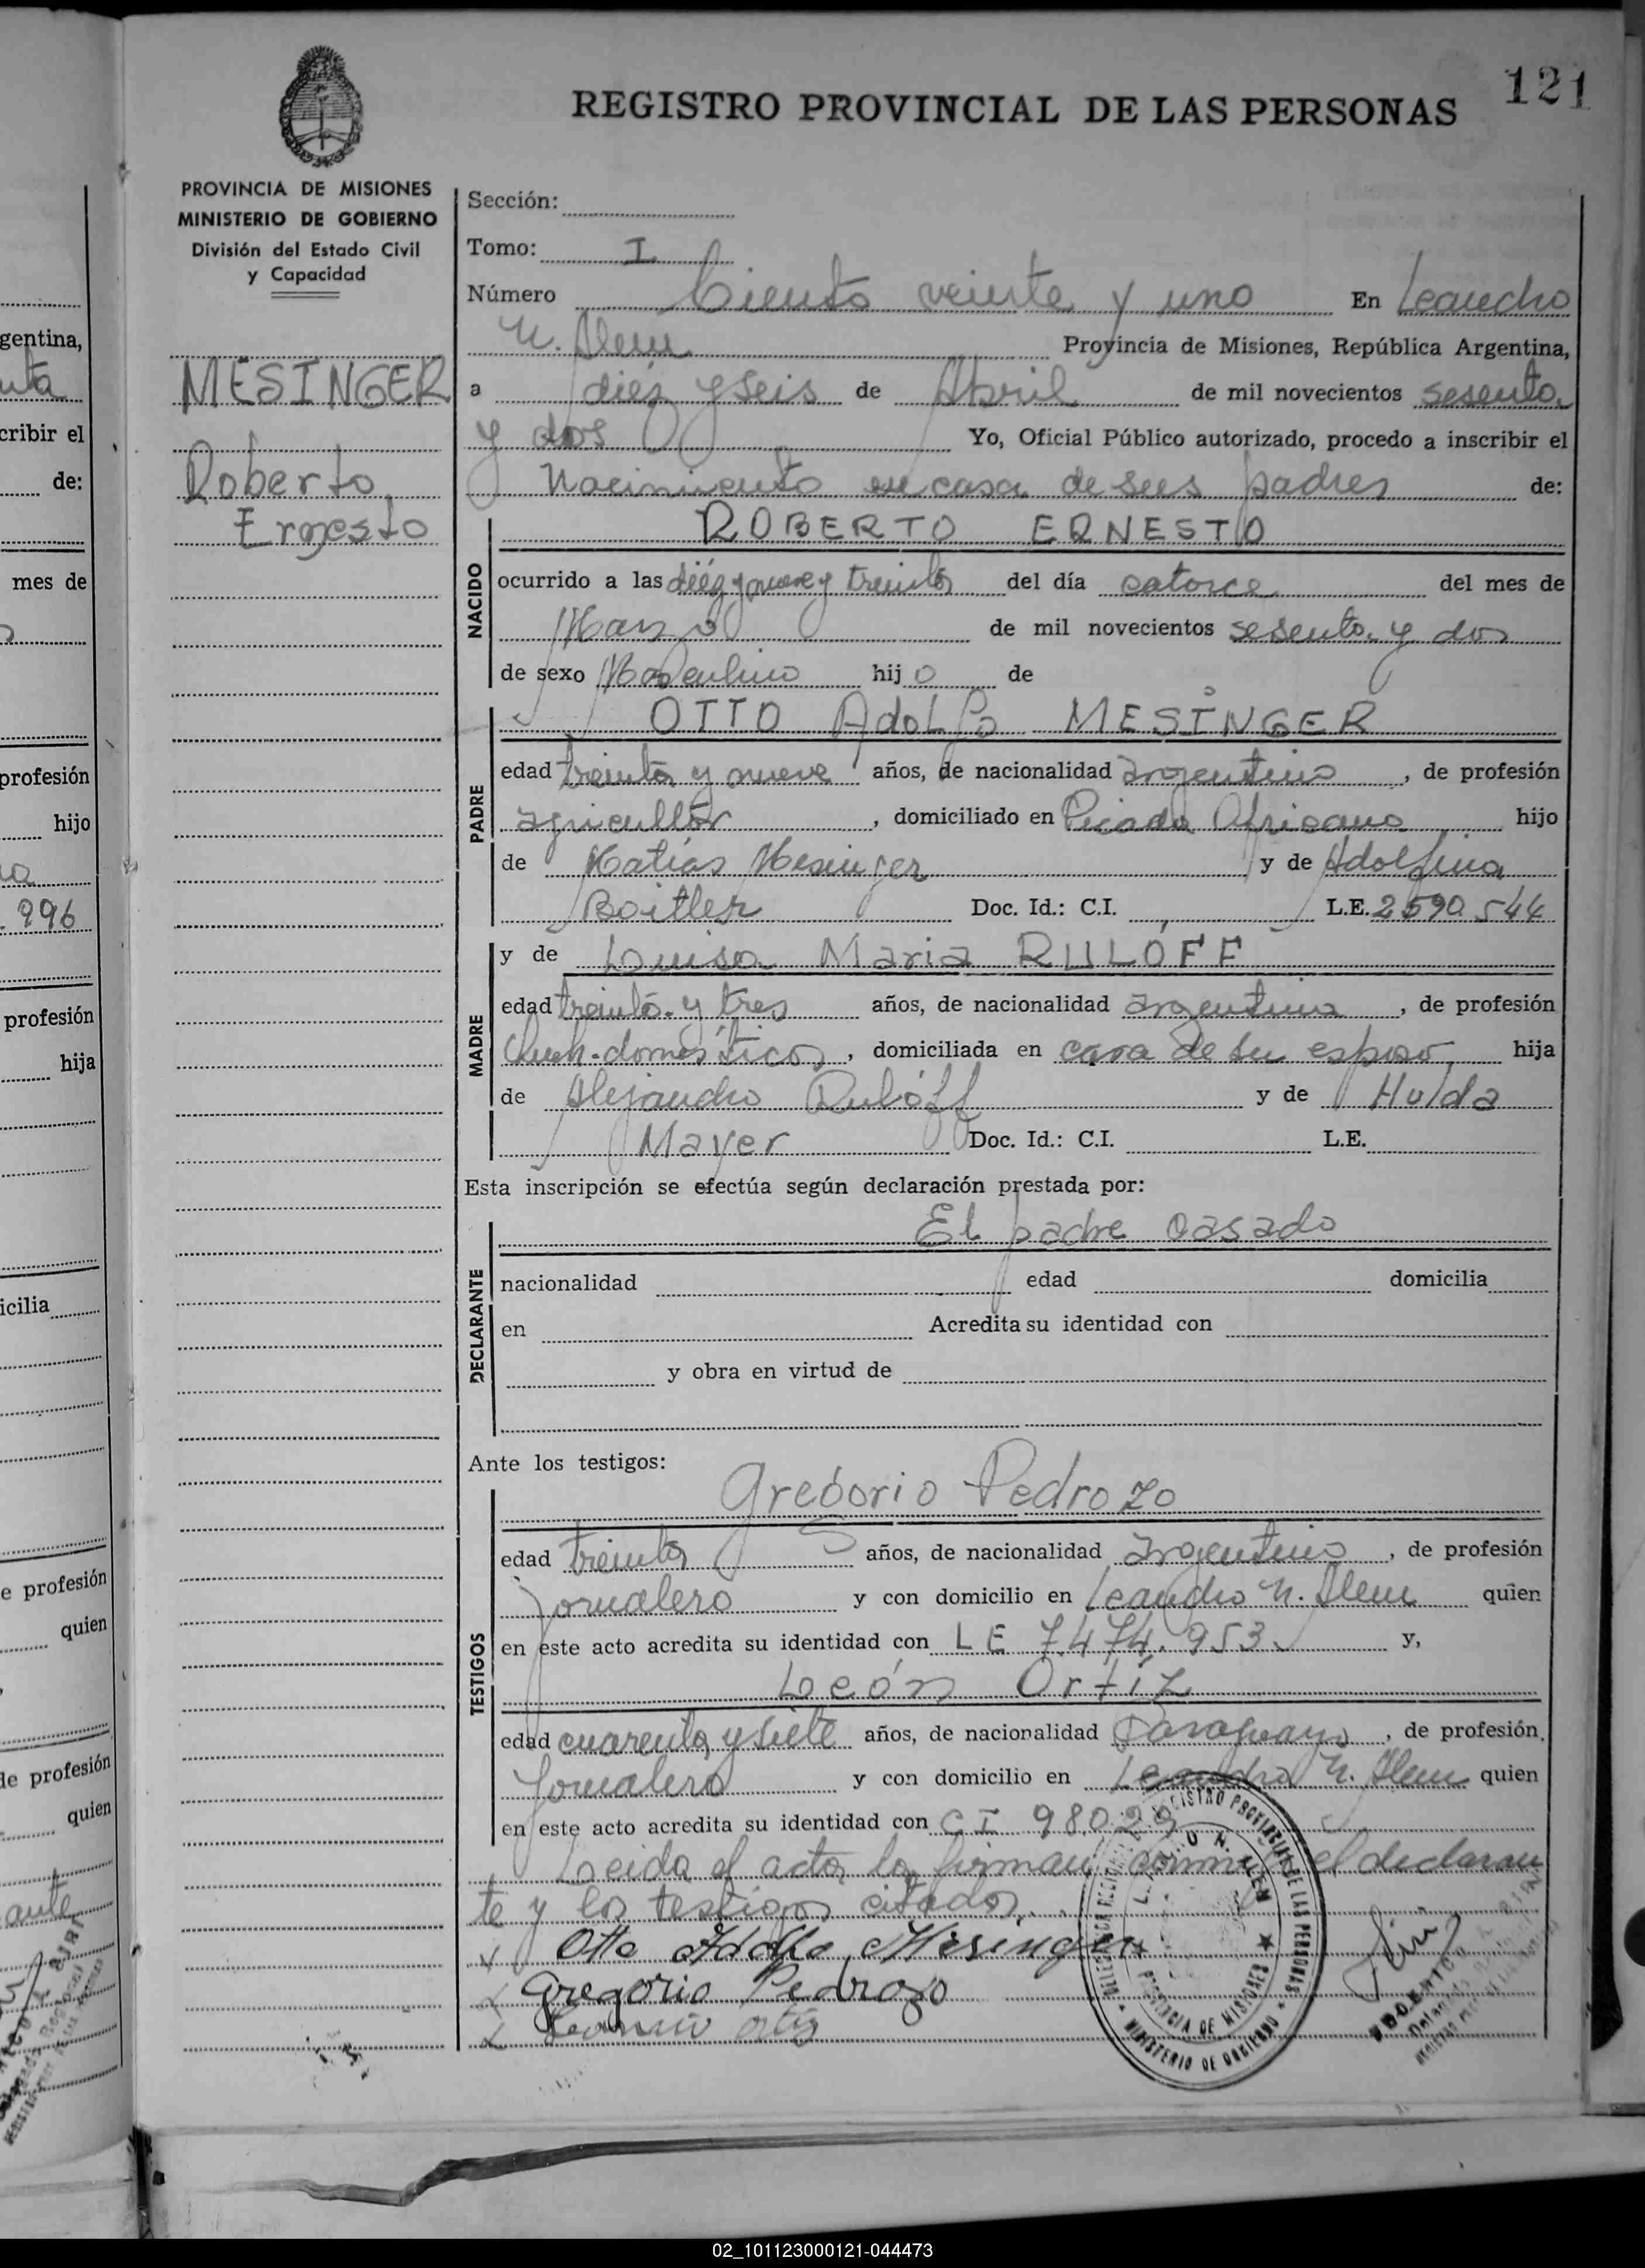 121
REGISTRO PROVINCIAL DE LAS PERSONAS
PROVINCIA DE MISIONES
MINISTERIO DE GOBIERNO
División del Estado Civil
y Capacidad
MESINGER
Roberto
Ernesto
Sección:
Tomo: I
Número Ciento veinte y uno En Leandro
N. Alem Provincia de Misiones, República Argentina,
a diéz y seis de Abril de mil novecientos sesenta
y dos Yo, Oficial Público autorizado, procedo a inscribir el
Nacimiento en casa de sus padres de:
NACIDO
ROBERTO ERNESTO
ocurrido a las diéz y nueve y treinta del día catorce del mes de
Marzo de mil novecientos sesenta y dos
de sexo Masculino hijo de
PADRE
OTTO AdoLfo MESINGER
edad treinta y nueve años, de nacionalidad argentino, de profesión
agricultor, domiciliado en Picada Africana hijo
de Matías Mesinger y de Adolfina
Boitler Doc. Id.: C.I. L.E. 2590544
MADRE
y de Luisa Maria RULÓFF
edad treinta y tres años, de nacionalidad argentina, de profesión
domésticos, domiciliada en casa de su esposo hija
de Alejandro Rulóff y de Hulda
Mayer Doc. Id.: C.I. L.E.
Esta inscripción se efectúa según declaración prestada por:
DECLARANTE
El padre casado
nacionalidad edad domicilia
en Acredita su identidad con
y obra en virtud de
Ante los testigos:
TESTIGOS
Gregorio Pedrozo
edad treinta años, de nacionalidad argentino, de profesión
jornalero y con domicilio en Leandro N. Alem quien
en este acto acredita su identidad con LE 7.474.953 y,
León Ortíz
edad cuarenta y siete años, de nacionalidad Paraguayo, de profesión,
Jornalero y con domicilio en Leandro N. Alem quien
en este acto acredita su identidad con CI 98.029
Leida el acta la firman el declaran
te y los testigos citados.
Otto Adolfo Mesinger
Gregorio Pedrozo
Ortiz
REGISTRO PROVINCIAL DE LAS PERSONAS
PROVINCIA DE MISIONES
MINISTERIO DE GOBIERNO
gentina,
cribir el
de:
mes de
profesión
hijo
996
profesión
hija
icilia
e profesión
quien
de profesión
quien
ante
02_101123000121-044473